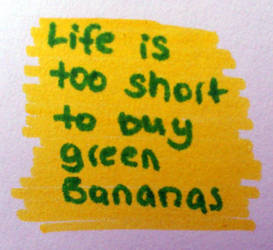 Life is
too short
to buy
green
Bananas